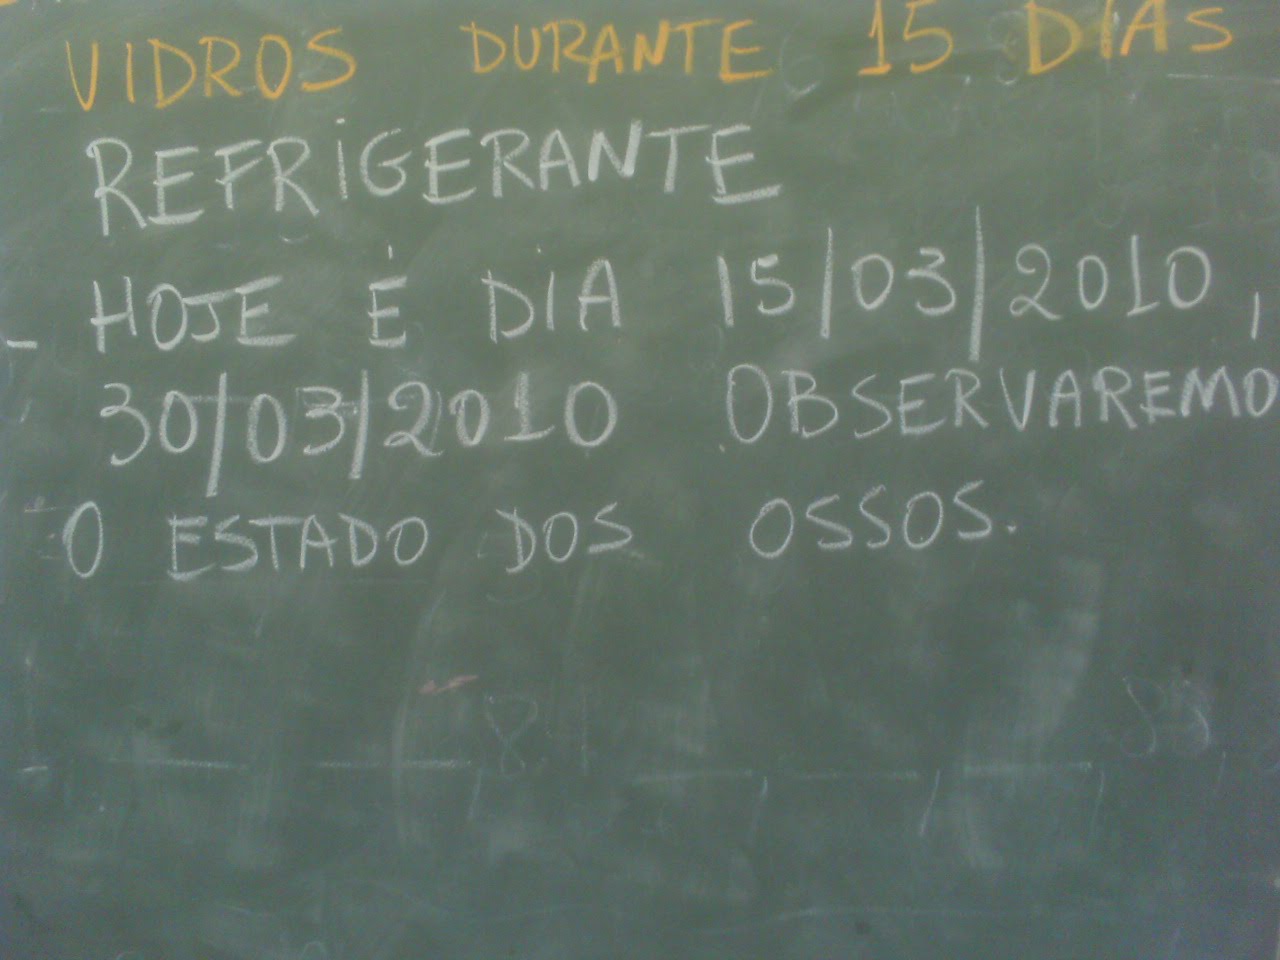 VIDROS DURANTE 15 DIAS
REFRIGERANTE
- HOJE É DIA 15/03/2010,
30/03/2010 OBSERVAREMO
O ESTADO DOS OSSOS.